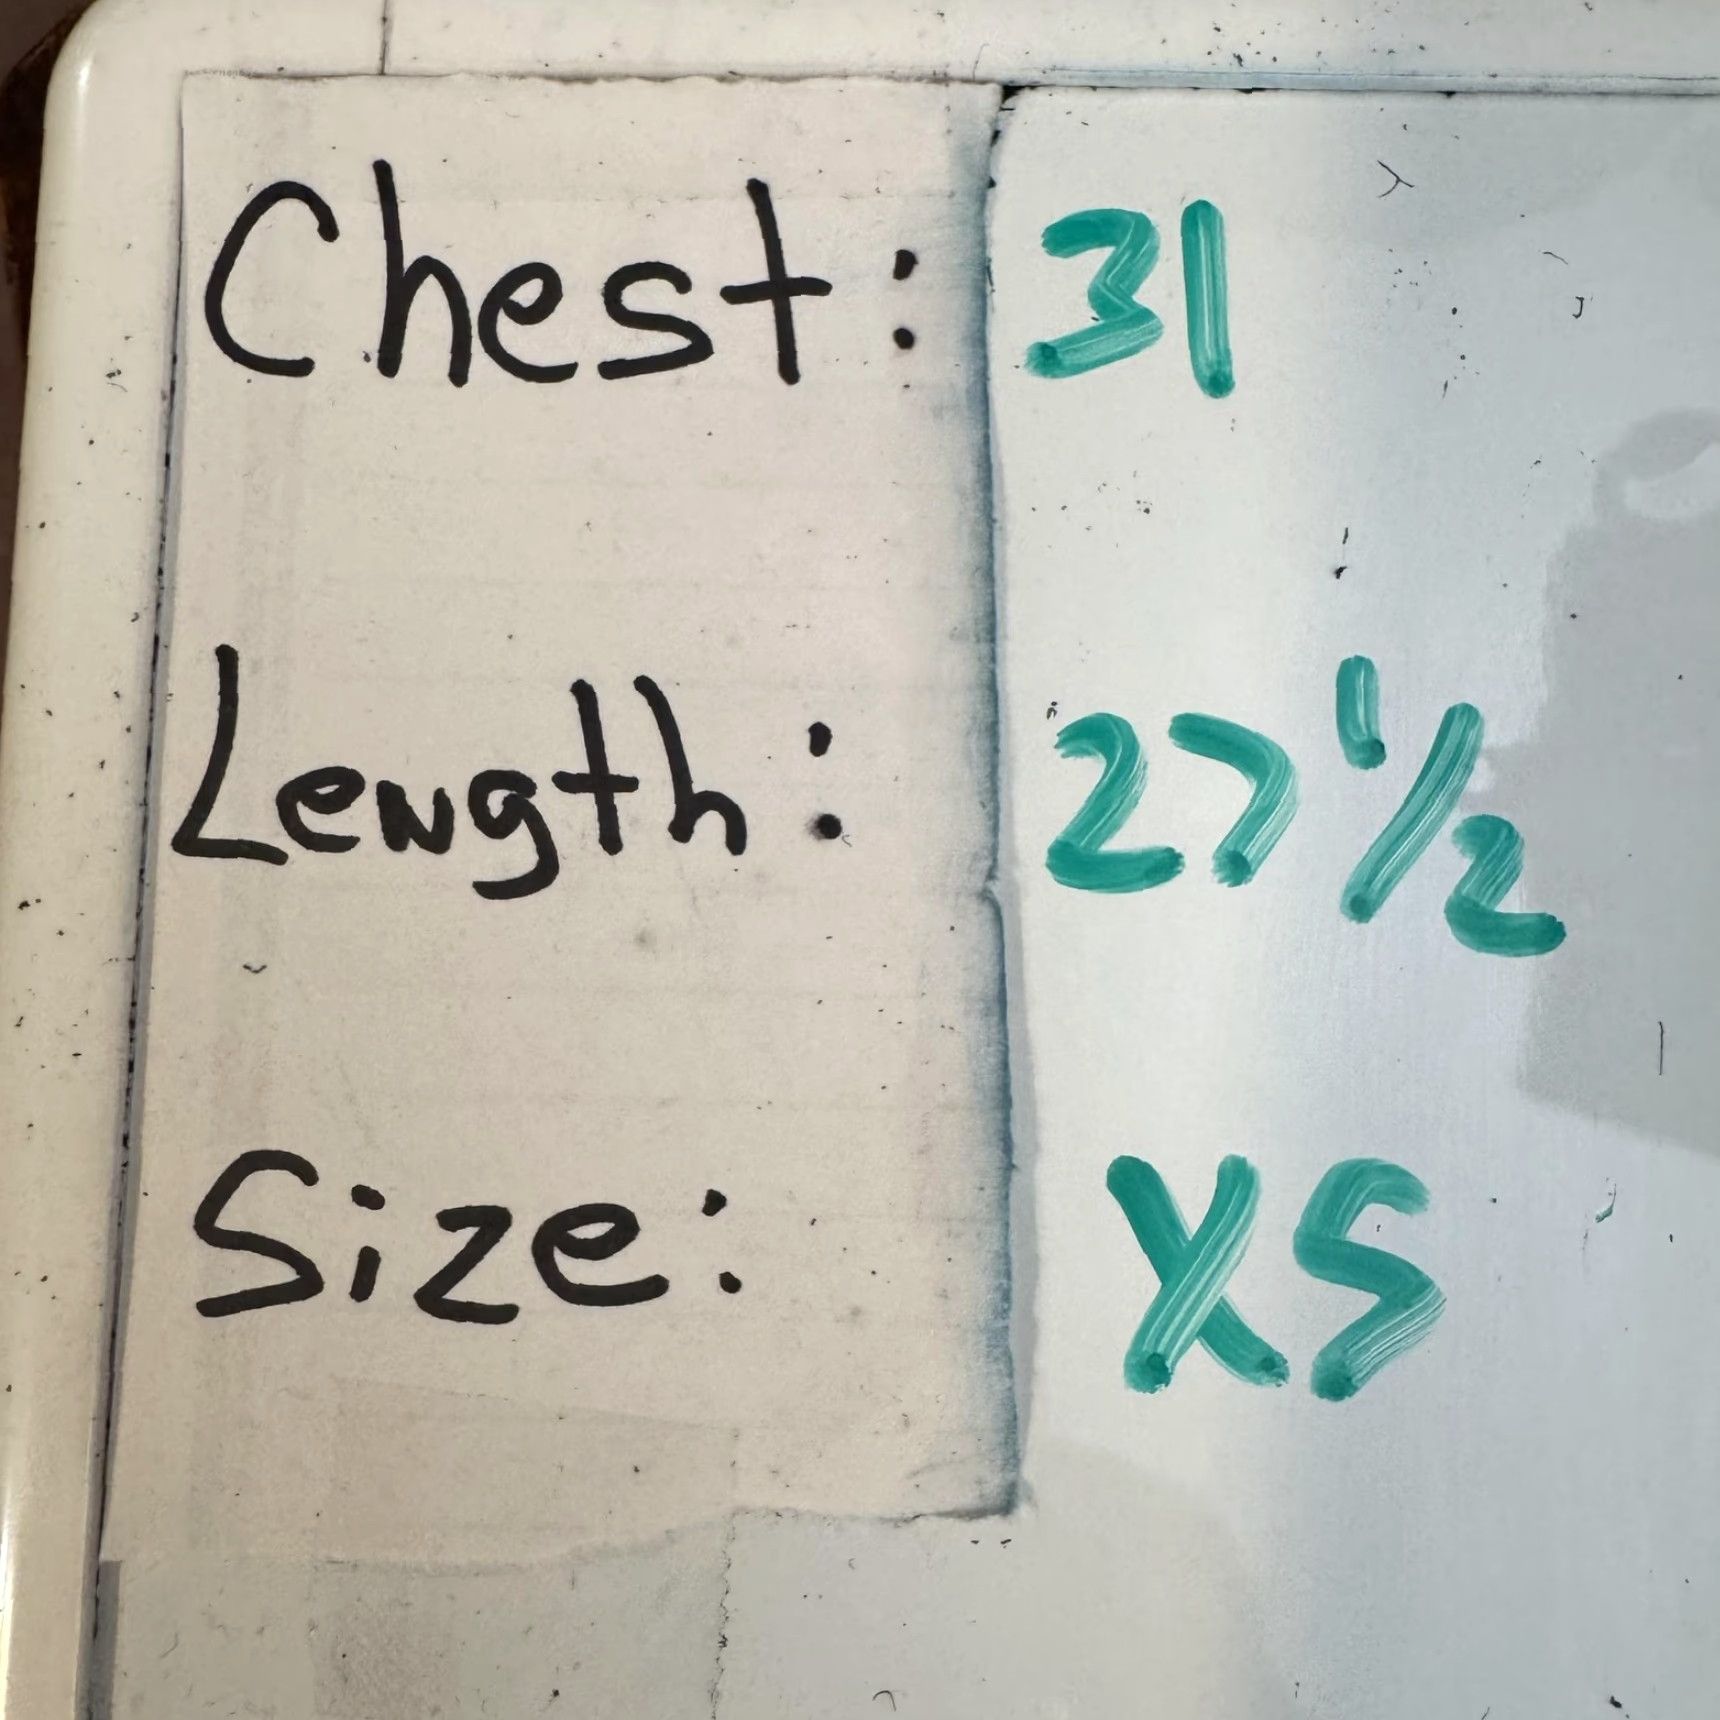 Chest: 31
Length: 27 1/2
Size: XS